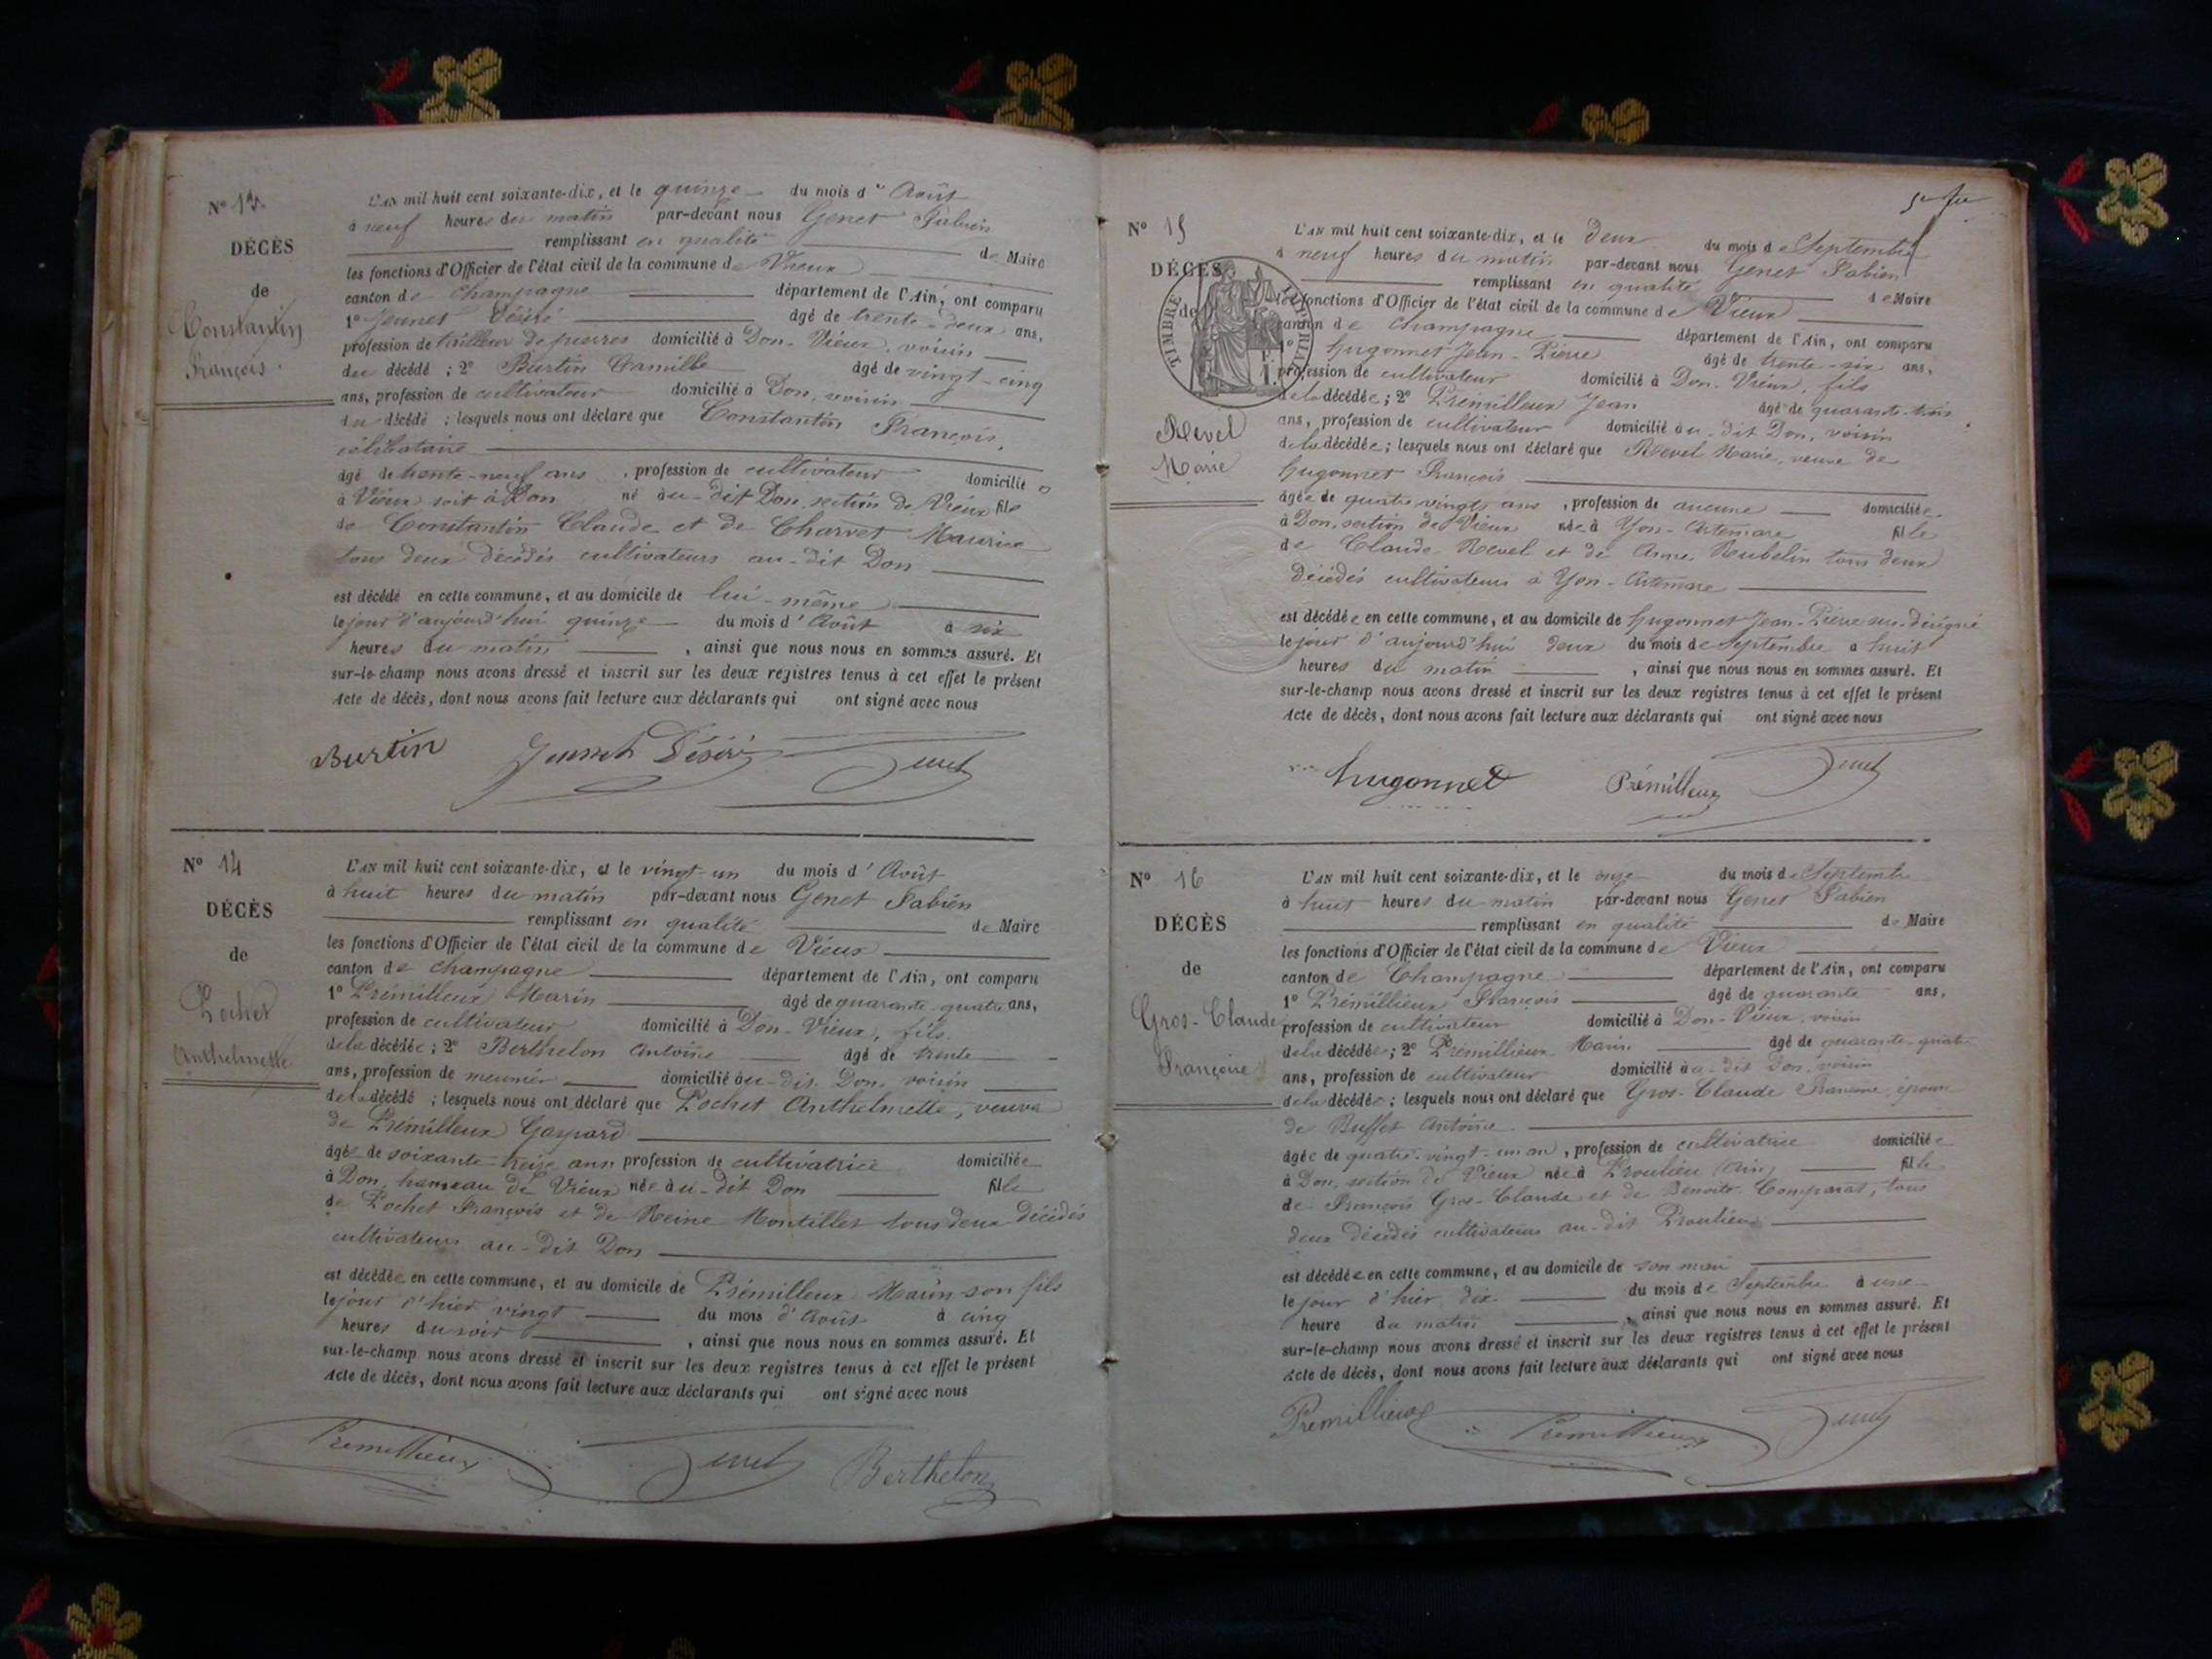 N° 13
DÉCÈS
de
Constantin
François.
L'AN mil huit cent soixante-dix, et le quinze du mois d' Août
à neuf heures du matin par-devant nous Genet Fabien
remplissant en qualité de Maire
les fonctions d'Officier de l'état civil de la commune de Vieux
canton de Champagne département de l'Ain, ont comparu
1° Jeunet Désiré âgé de trente-deux ans,
profession de tailleur de pierres domicilié à Don-Vieux, voisin
du décédé ; 2° Burtin Camille âgé de vingt-cinq
ans, profession de cultivateur domicilié à Don, voisin
du décédé ; lesquels nous ont déclaré que Constantin François,
célibataire
âgé de trente-neuf ans, profession de cultivateur domicilié
à Vieux soit à Don né au-dit Don, section de Vieux fils
de Constantin Claude et de Charvet Maurise
tous deux décédés cultivateurs au-dit Don
est décédé en cette commune, et au domicile de lui-même
le jour d'aujourd'hui quinze du mois d' Août à six
heures du matin, ainsi que nous nous en sommes assuré. Et
sur-le-champ nous avons dressé et inscrit sur les deux registres tenus à cet effet le présent
Acte de décès, dont nous avons fait lecture aux déclarants qui ont signé avec nous
Burtin Jeunet Désiré Genet
N° 14
DÉCÈS
de
Pochet
Anthelmette
L'AN mil huit cent soixante-dix, et le vingt-un du mois d' Août
à huit heures du matin par-devant nous Genet Fabien
remplissant en qualité de Maire
les fonctions d'Officier de l'état civil de la commune de Vieux
canton de Champagne département de l'Ain, ont comparu
1° Prémilleux Marin âgé de quarante-quatre ans,
profession de cultivateur domicilié à Don-Vieux, fils
de la décédée ; 2° Berthelon Antoine âgé de trente
ans, profession de meunier domicilié au-dit Don, voisin
de la décédé ; lesquels nous ont déclaré que Pochet Anthelmette, veuve
de Prémilleux Gaspard
âgée de soixante-treize ans profession de cultivatrice domiciliée
à Don, hameau de Vieux née au-dit Don fille
de Pochet François et de Reine Montillet tous deux décédés
cultivateurs au-dit Don
est décédée en cette commune, et au domicile de Prémilleux Marin son fils
le jour d'hier vingt du mois d'Août à cinq
heures du soir, ainsi que nous nous en sommes assuré. Et
sur-le-champ nous avons dressé et inscrit sur les deux registres tenus à cet effet le présent
Acte de décès, dont nous avons fait lecture aux déclarants qui ont signé avec nous
Premillieux Genet Berthelon
N° 15
DÉCÈS
de
TIMBRE IMPERIAL
Revel
Marie
L'AN mil huit cent soixante-dix, et le deux du mois de Septembre
à neuf heures du matin par-devant nous Genet Fabien
remplissant en qualité de Maire
les fonctions d'Officier de l'état civil de la commune de Vieux
canton de Champagne département de l'Ain, ont comparu
1° Hugonnet Jean-Pierre âgé de trente-six ans,
profession de cultivateur domicilié à Don-Vieux, fils
de la décédée ; 2° Prémilleux Jean âgé de quarante-trois
ans, profession de cultivateur domicilié au-dit Don, voisin
de la décédée ; lesquels nous ont déclaré que Revel Marie, veuve de
Hugonnet François
âgée de quatre-vingts ans, profession de aucune domiciliée
à Don, section de Vieux née à Yon-Artemare fille
de Claude Revel et de Anne Rubelin tous deux
décédés cultivateurs à Yon-Artemare
est décédée en cette commune, et au domicile de Hugonnet Jean-Pierre sus-désigné
le jour d'aujourd'hui deux du mois de Septembre à huit
heures du matin, ainsi que nous nous en sommes assuré. Et
sur-le-champ nous avons dressé et inscrit sur les deux registres tenus à cet effet le présent
Acte de décès, dont nous avons fait lecture aux déclarants qui ont signé avec nous
hugonnet Prémilleux Genet
N° 16
DÉCÈS
de
Gros-Claude
Françoise
L'AN mil huit cent soixante-dix, et le onze du mois de Septembre
à huit heures du matin par-devant nous Genet Fabien
remplissant en qualité de Maire
les fonctions d'Officier de l'état civil de la commune de Vieux
canton de Champagne département de l'Ain, ont comparu
1° Prémillieux François âgé de quarante ans,
profession de cultivateur domicilié à Don-Vieux, voisin
de la décédée ; 2° Prémillieux Marin âgé de quarante-quatre
ans, profession de cultivateur domicilié au-dit Don, voisin
de la décédée ; lesquels nous ont déclaré que Gros-Claude Françoise, épouse
de Buffet Antoine
âgée de quatre-vingt-un an, profession de cultivatrice domiciliée
à Don, section de Vieux née à Proulieu (Ain) fille
de François Gros-Claude et de Benoite Comparat, tous
deux décédés cultivateurs au-dit Proulieu
est décédée en cette commune, et au domicile de son mari
le jour d'hier dix du mois de Septembre à une
heure du matin, ainsi que nous nous en sommes assuré. Et
sur-le-champ nous avons dressé et inscrit sur les deux registres tenus à cet effet le présent
Acte de décès, dont nous avons fait lecture aux déclarants qui ont signé avec nous
Premillieux Premillieux Genet